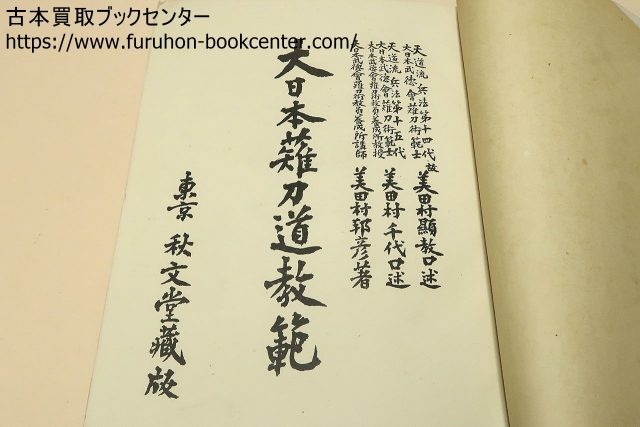 古本買取ブックセンター
https://www.furuhon-bookcenter.com/
天道流兵法第十四代
大日本武徳會薙刀術範士
故 美田村顯教口述
天道流兵法第十五代
大日本武徳會薙刀術範士
大日本武徳會薙刀術教員養成所教授
美田村千代口述
大日本武徳會薙刀術教員養成所講師
美田村邦彦著
大日本薙刀道教範
東京 秋文堂藏版